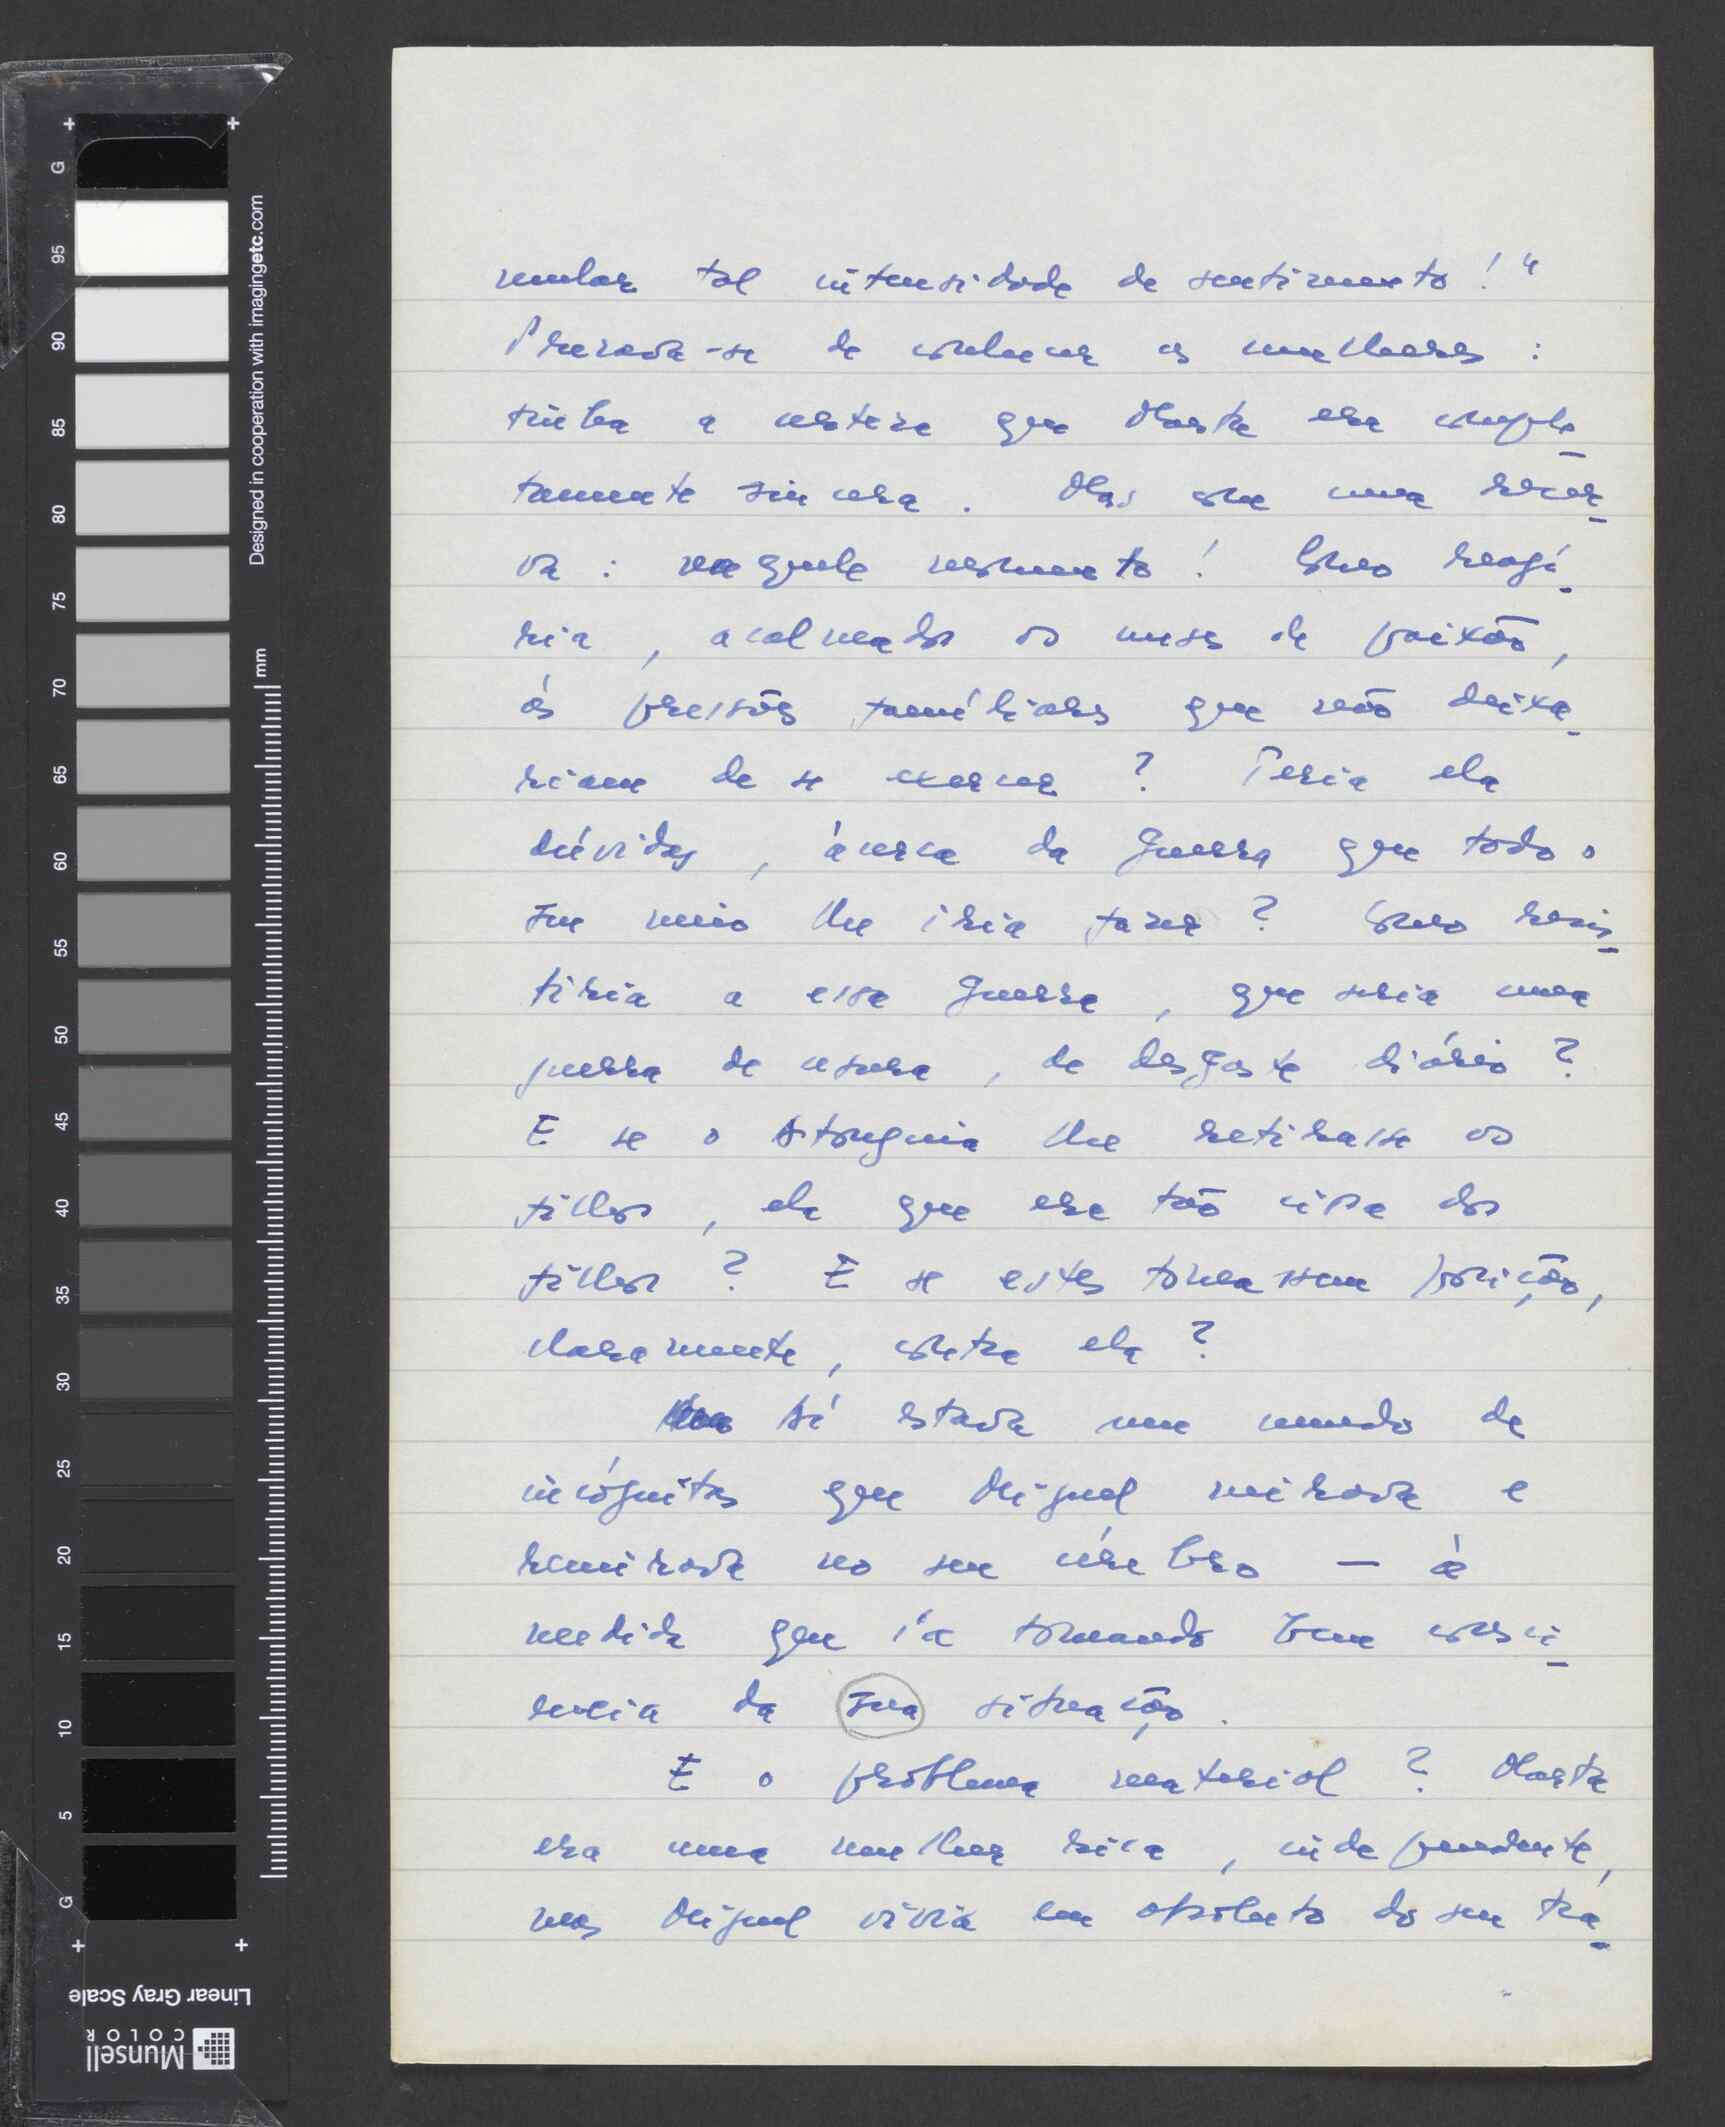 mular tal intensidade de sentimento!"
Prezava-se de conhecer as mulheres:
tinha a certeza que Marta era comple-
tamente sincera. Mas era uma sincer
va: naquele momento! Como reagi-
ria, acalmados os meses de paixão,
ás pressões famíliares que não deixa-
riam de se exercer? Teria ela
dúvidas, àcerca da guerra que todo o
seu meio lhe iria fazer? Como resis-
tiria a essa guerra, que seria uma
guerra de usura, de desgaste diário?
E se o Stonguia lhe retirasse os
filhos, ela que era tão ciosa dos
filhos? E se estes tomassem posição,
claramente, contra ela?
Aí estava um mundo de
incógnitas que Miguel mirava e
remirava no seu cérebro — à
medida que ía tomando bem consci-
ência da sua situação.
E o problema material? Marta
era uma mulher rica, independente,
mas Miguel vivia em absoluto do seu tra-
G
95
90
85
80
75
70
65
60
55
50
45
40
35
30
25
20
15
10
5
G
mm
Designed in cooperation with imagingetc.com
Linear Gray Scale
Munsell
COLOR